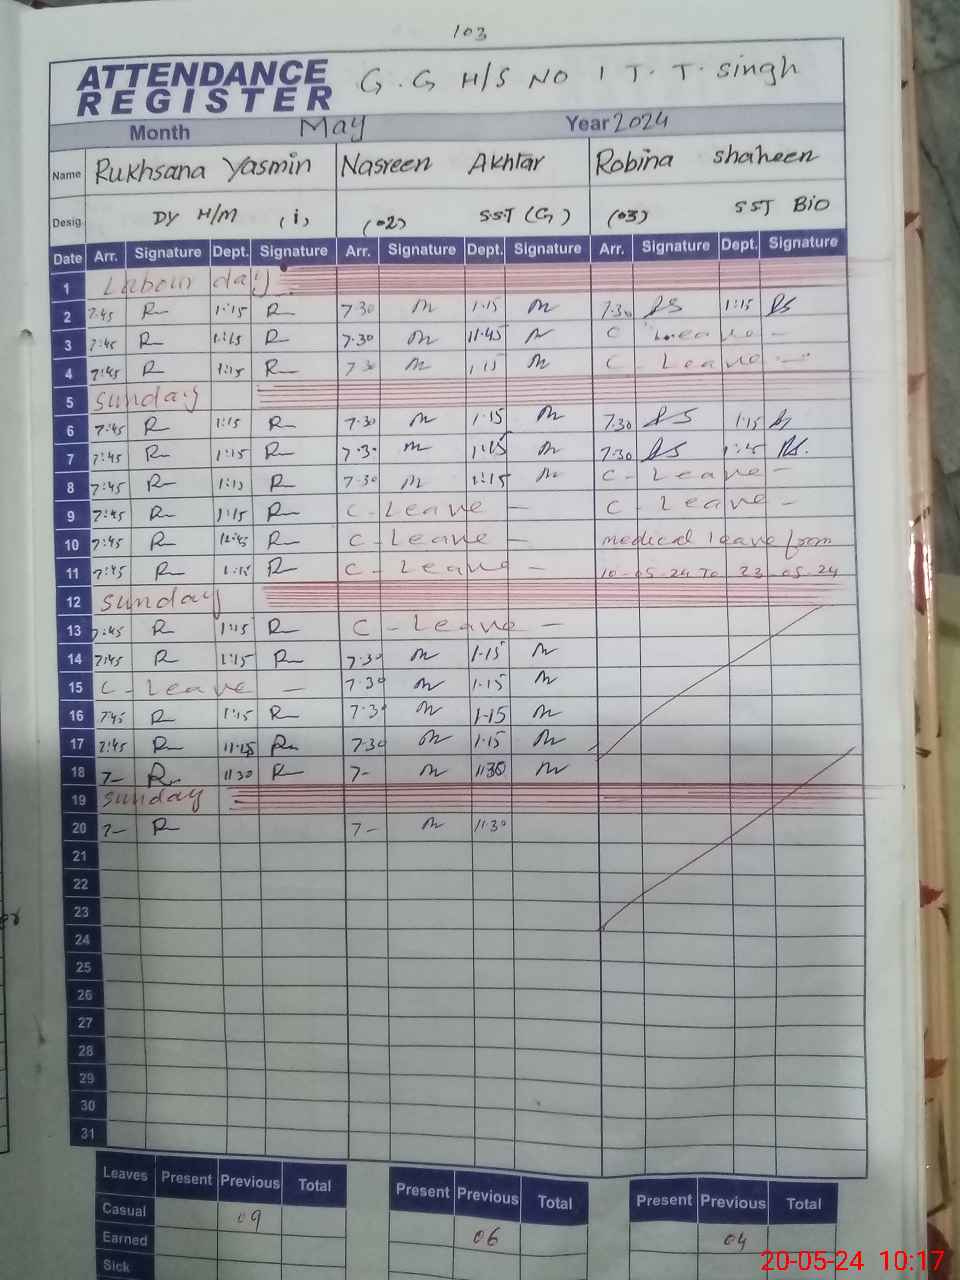 103
ATTENDANCE REGISTER G.G H/S NO 1 T.T.singh
Month May Year 2024
Name Rukhsana Yasmin Nasreen Akhtar Robina shaheen
Desig. DY H/M (i) (02) SST (G) (03) SST BiO
Date Arr. Signature Dept. Signature Arr. Signature Dept. Signature Arr. Signature Dept. Signature
1 Labour day
2 7:45 R 1:15 R 7.30 1.15 7.30 RS 1:15 RS
3 7:45 R 1:15 R 7.30 11.45 C Leave -
4 7:45 R 1:15 R 7 30 1 15 C - Leave -
5 Sunday
6 7:45 R 1:15 R 7.30 1.15 7.30 RS 1.15
7 7:45 R 1:15 R 7.30 1:15 7.30 RS RS.
8 7:45 R 1:15 R 7.30 1:15 C - Leave -
9 7:45 R 1:15 R C - Leave - C - Leave -
10 7:45 R 12:45 R C - Leave - medical leave from
11 7:45 R 1:15 R C - Leave - 10-05-24 To 23-05-24
12 Sunday
13 7:45 R 1:15 R C - Leave -
14 7:45 R 1:15 R 7.30 1.15
15 C - Leave - 7.30 1.15
16 7:45 R 1:15 R 7.30 1.15
17 7:45 R R 7.30 1.15
18 7- R 11 30 R 7- 11:30
19 Sunday
20 7- R 7- 11.30
21
22
23
24
25
26
27
28
29
30
31
Leaves Present Previous Total Present Previous Total Present Previous Total
Casual 09 06 04
Earned
Sick
20-05-24 10:17